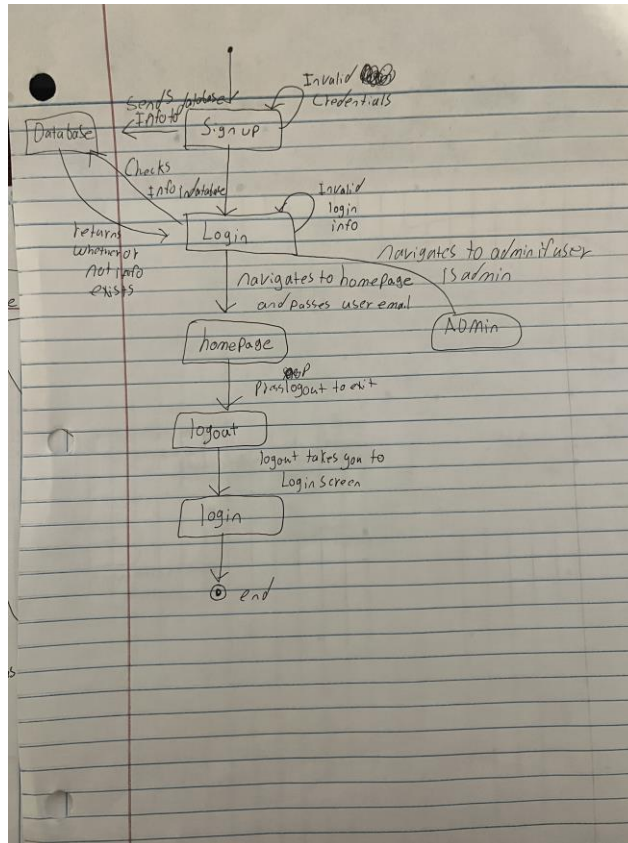 Invalid
Credentials
Sends database
Info to
Sign up
Database
Checks
Info in database
Invalid
login
info
Login
returns
whether or
not info
exists
navigates to admin if user
is admin
navigates to homepage
and passes user email
ADmin
homepage
Press logout to exit
logout
logout takes you to
Login screen
login
end